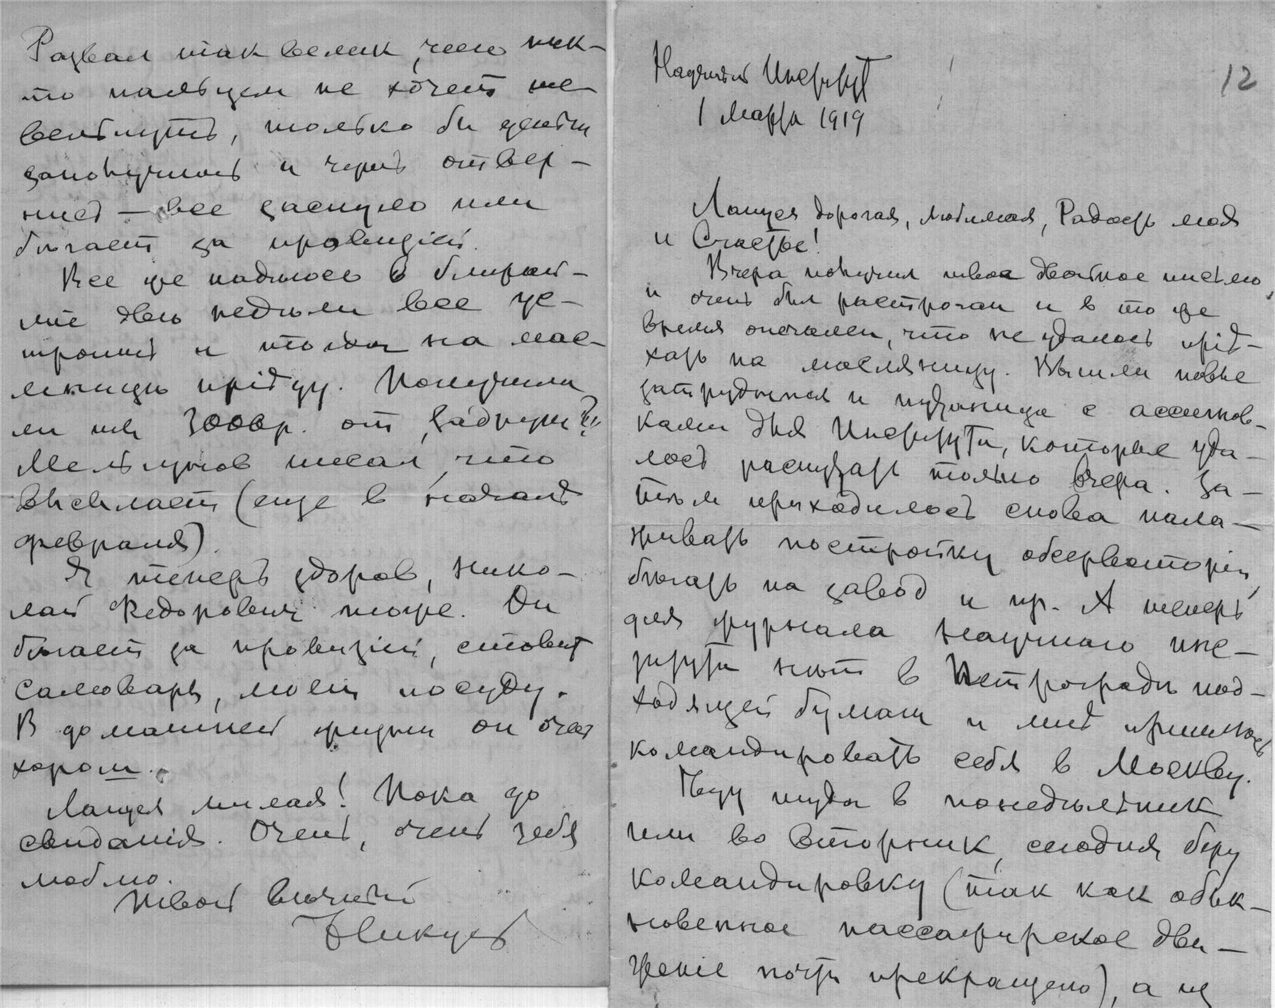 Развал так велик, что ник-
то пальцем не хочет ше-
вельнуть, только бы деньги
и через отвер-
— все заснуло или
бѣгает за провизіей.
Все же надѣюсь в ближай-
шіе двѣ недѣли все ус-
троить и тогда на мас-
лянницу пріѣду. Получила
ли ты 300 р. от
Мельгунов писал, что
высылает (еще в началѣ
февраля).
Я теперь здоров, Нико-
лай Федорович тоже. Он
бѣгает за провизіей, ставит
самовар, моет посуду.
В домашней жизни он очень
хорош.
Лапуся милая! Пока до
свиданія. Очень, очень тебя
люблю.
Твой вѣчный
12
Научный Институт
1 марта 1919
Лапуся дорогая, любимая, Радость моя
и Счастье!
Вчера получил твое двойное письмо,
и очень был растроган и в то же
время опечален, что не удалось пріѣ-
хать на масляницу. Вышли новые
затрудненія и путаница с ассигнов-
ками для Института, которые уда-
лось распутать только вчера. За-
тѣм приходилось снова нала-
живать постройку обсерваторіи,
бѣгать на завод и пр. А теперь
для журнала Научнаго инс-
титута нѣт в Петроградѣ под-
ходящей бумаги и мнѣ пришлось
командировать себя в Москву.
Ѣду туда в понедѣльник
или во вторник, сегодня беру
командировку (так как обык-
новенное пассажирское дви-
женіе почти прекращено), а